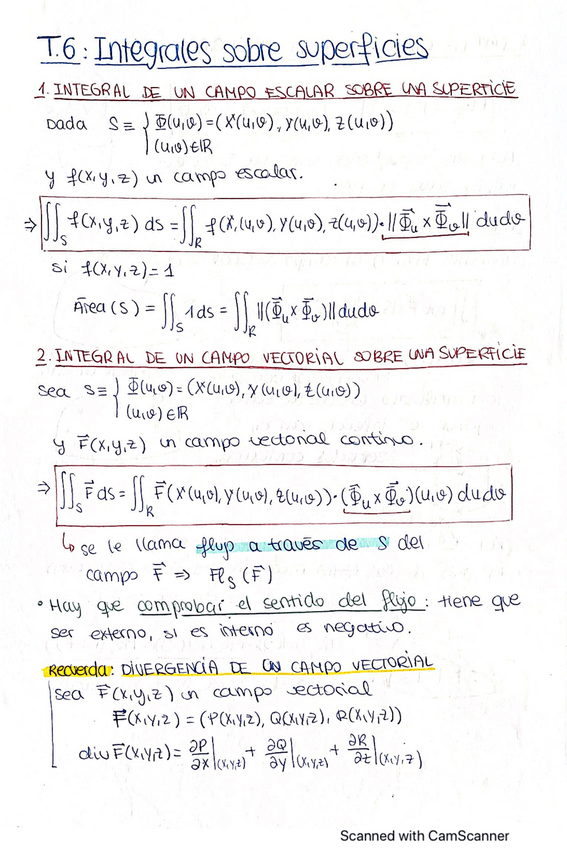 T.6: Integrales sobre superficies
1. INTEGRAL DE UN CAMPO ESCALAR SOBRE UNA SUPERFICIE
Dada S ≡ { Φ(u,v) = (X(u,v), Y(u,v), Z(u,v))
(u,v) ∈ R
y f(x,y,z) un campo escalar.
⇒ ∬_S f(x,y,z) ds = ∬_R f(X(u,v), Y(u,v), Z(u,v)) · ||Φ⃗_u x Φ⃗_v|| du dv
si f(x,y,z) = 1
Área (S) = ∬_S 1 ds = ∬_R ||(Φ⃗_u x Φ⃗_v)|| du dv
2. INTEGRAL DE UN CAMPO VECTORIAL SOBRE UNA SUPERFICIE
sea S ≡ { Φ(u,v) = (X(u,v), Y(u,v), Z(u,v))
(u,v) ∈ R
y F⃗(x,y,z) un campo vectorial continuo.
⇒ ∬_S F⃗ ds = ∬_R F⃗(X(u,v), Y(u,v), Z(u,v)) · (Φ⃗_u x Φ⃗_v)(u,v) du dv
↳ se le llama flujo a través de S del
campo F⃗ ⇒ Fl_S (F⃗)
• Hay que comprobar el sentido del flujo: tiene que
ser externo, si es interno es negativo.
Recuerda: DIVERGENCIA DE UN CAMPO VECTORIAL
sea F⃗(x,y,z) un campo vectorial
F⃗(x,y,z) = (P(x,y,z), Q(x,y,z), R(x,y,z))
div F⃗(x,y,z) = ∂P/∂x|(x,y,z) + ∂Q/∂y|(x,y,z) + ∂R/∂z|(x,y,z)
Scanned with CamScanner